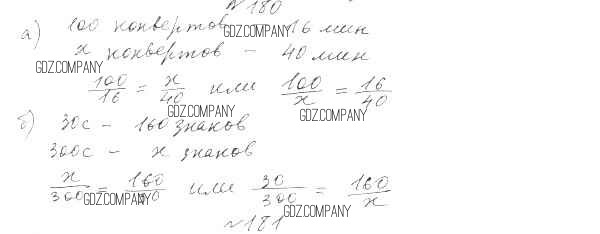 № 180
а) 100 конвертов GDZ.COMPANY 16 мин
х конвертов - 40 мин
GDZ.COMPANY
100/16 = х/40 или 100/х = 16/40
GDZ.COMPANY GDZ.COMPANY
б) 30с - 160 знаков
300с - х знаков
х/300 = 160/30 или 30/300 = 160/х
GDZ.COMPANY GDZ.COMPANY
№ 181